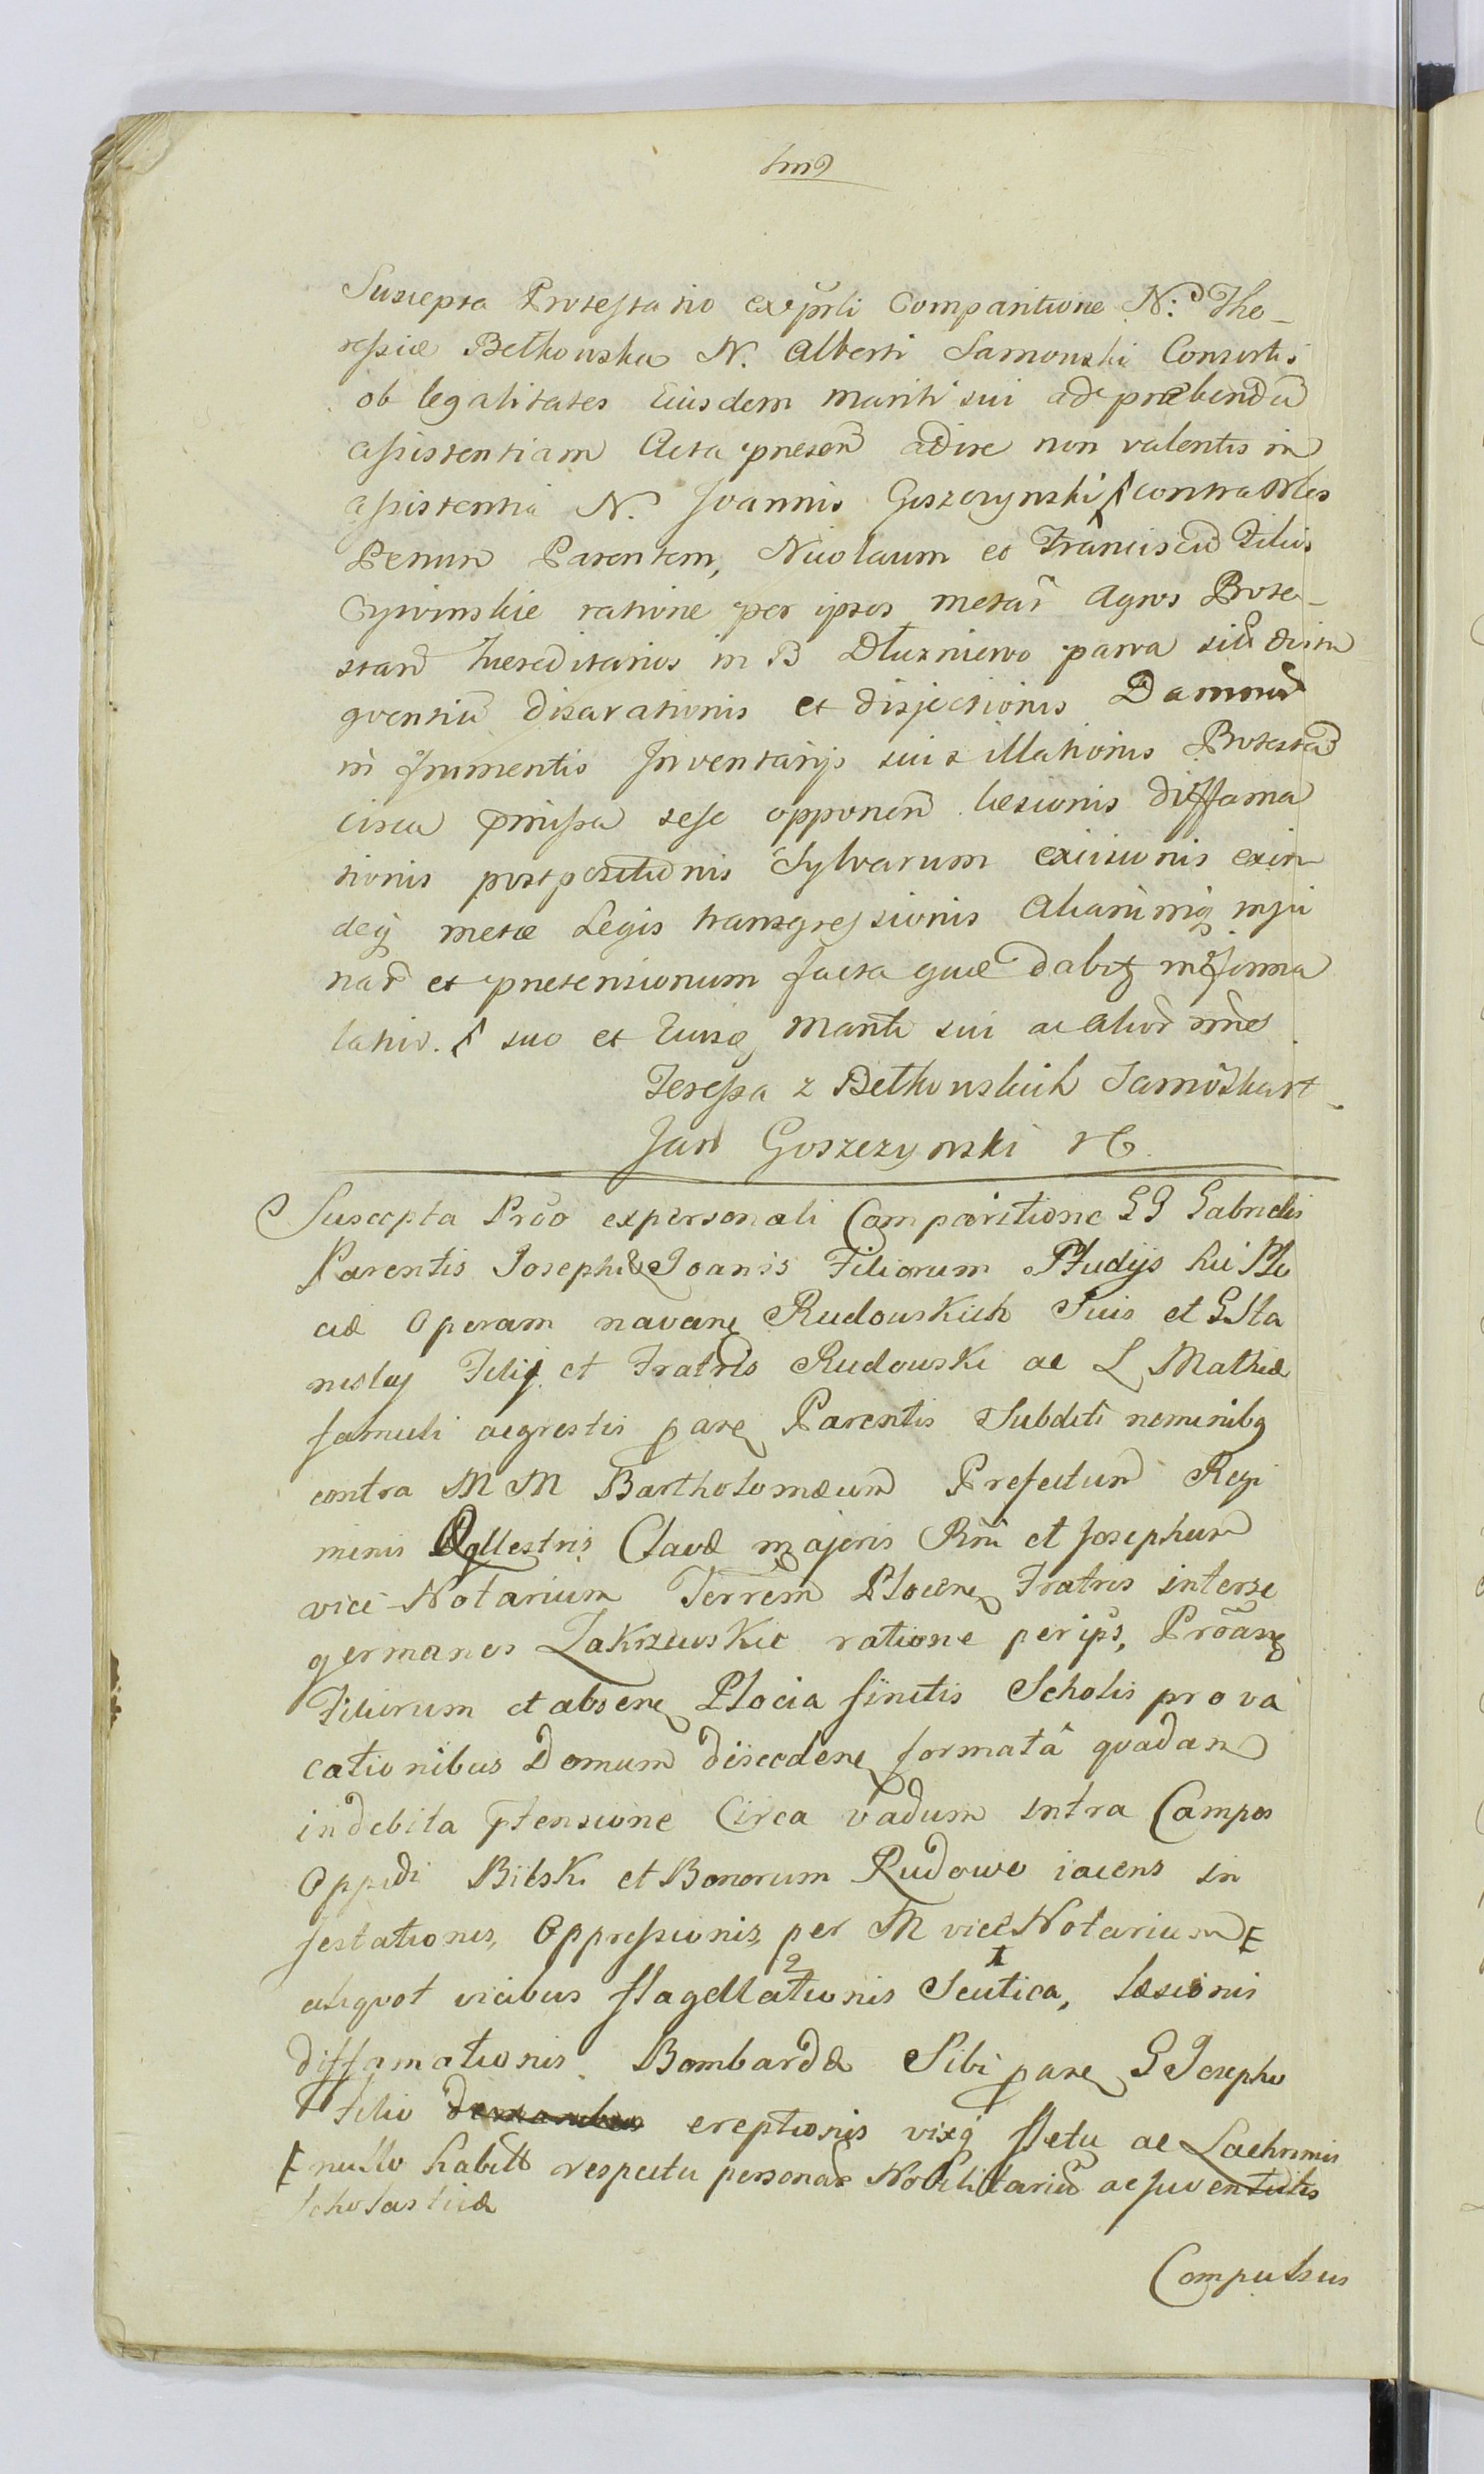 Suscepta Protestatio ex prli Comparitione N. The-
ressiæ Bełkowska N. Alberti Samowski Consortis
ob legalitates Eiusdem mariti sui ad præbendã
assistentiam Acta presen adire non valentis in
assistentia N. Joannis Goszczynski contra Nles
Petrum Parentem, Nicolaum et Franciscũ Filios
Cywinskie ratione per ipsos metas Agros Prote-
stan hæreditarios in B Dłuzniewo parva sitũ distin
guentiũ disarationis et disjectionis Damnor
in frumentis Inventarijs suis illationis Protestan
circa pmissa sese opponen læsionis diffama
tionis postpositionis Sylvarum excisionis exin
deq metæ Legis transgressionis aliarumq inju
riar et pretensionum facta quæ dabit in forma
latior. suo et Eiusq Mariti sui ac alior nñe
Teressa z Bełkowskich Samowska
Jan Goszczynski
Suscepta Prõo ex personali Comparitione GG Gabrielis
Parentis Josephi & Joanis Filiorum Studijs hic Plo
ciæ Operam navan Rudowskich Suis et G Sta
nislaj Filij et Fratris Rudowski ac L Mathiæ
famuli aegrestis par Parentis Subditi nominibq
contra M M Bartholomæum Prefectum Regi
minis Eqllestris Clavæ majoris Rni et Josephum
vice Notarium Terrem Plocen Fratres inter se
germanos Zakrzewskie ratione per ips, Prõan
Filiorum et absen Plocia finitis Scholis pro va
cationibus Domum disceden formatâ quadam
indebita ptensione Circa vadum intra Campos
Oppidi Bilsk et Bonorum Rudowo iacens in
festationis, Oppressionis, per M vice Notarium E
aliquot vicibus flagellationis Scutica, læsionis
diffamationis Bombardæ Sibi par G Josepho
Filio ereptionis vixq fletu ac Lachrimis
E nullo habitto respectu personar Nobilitariũ ac juventutis
scholasticæ
Compulsus